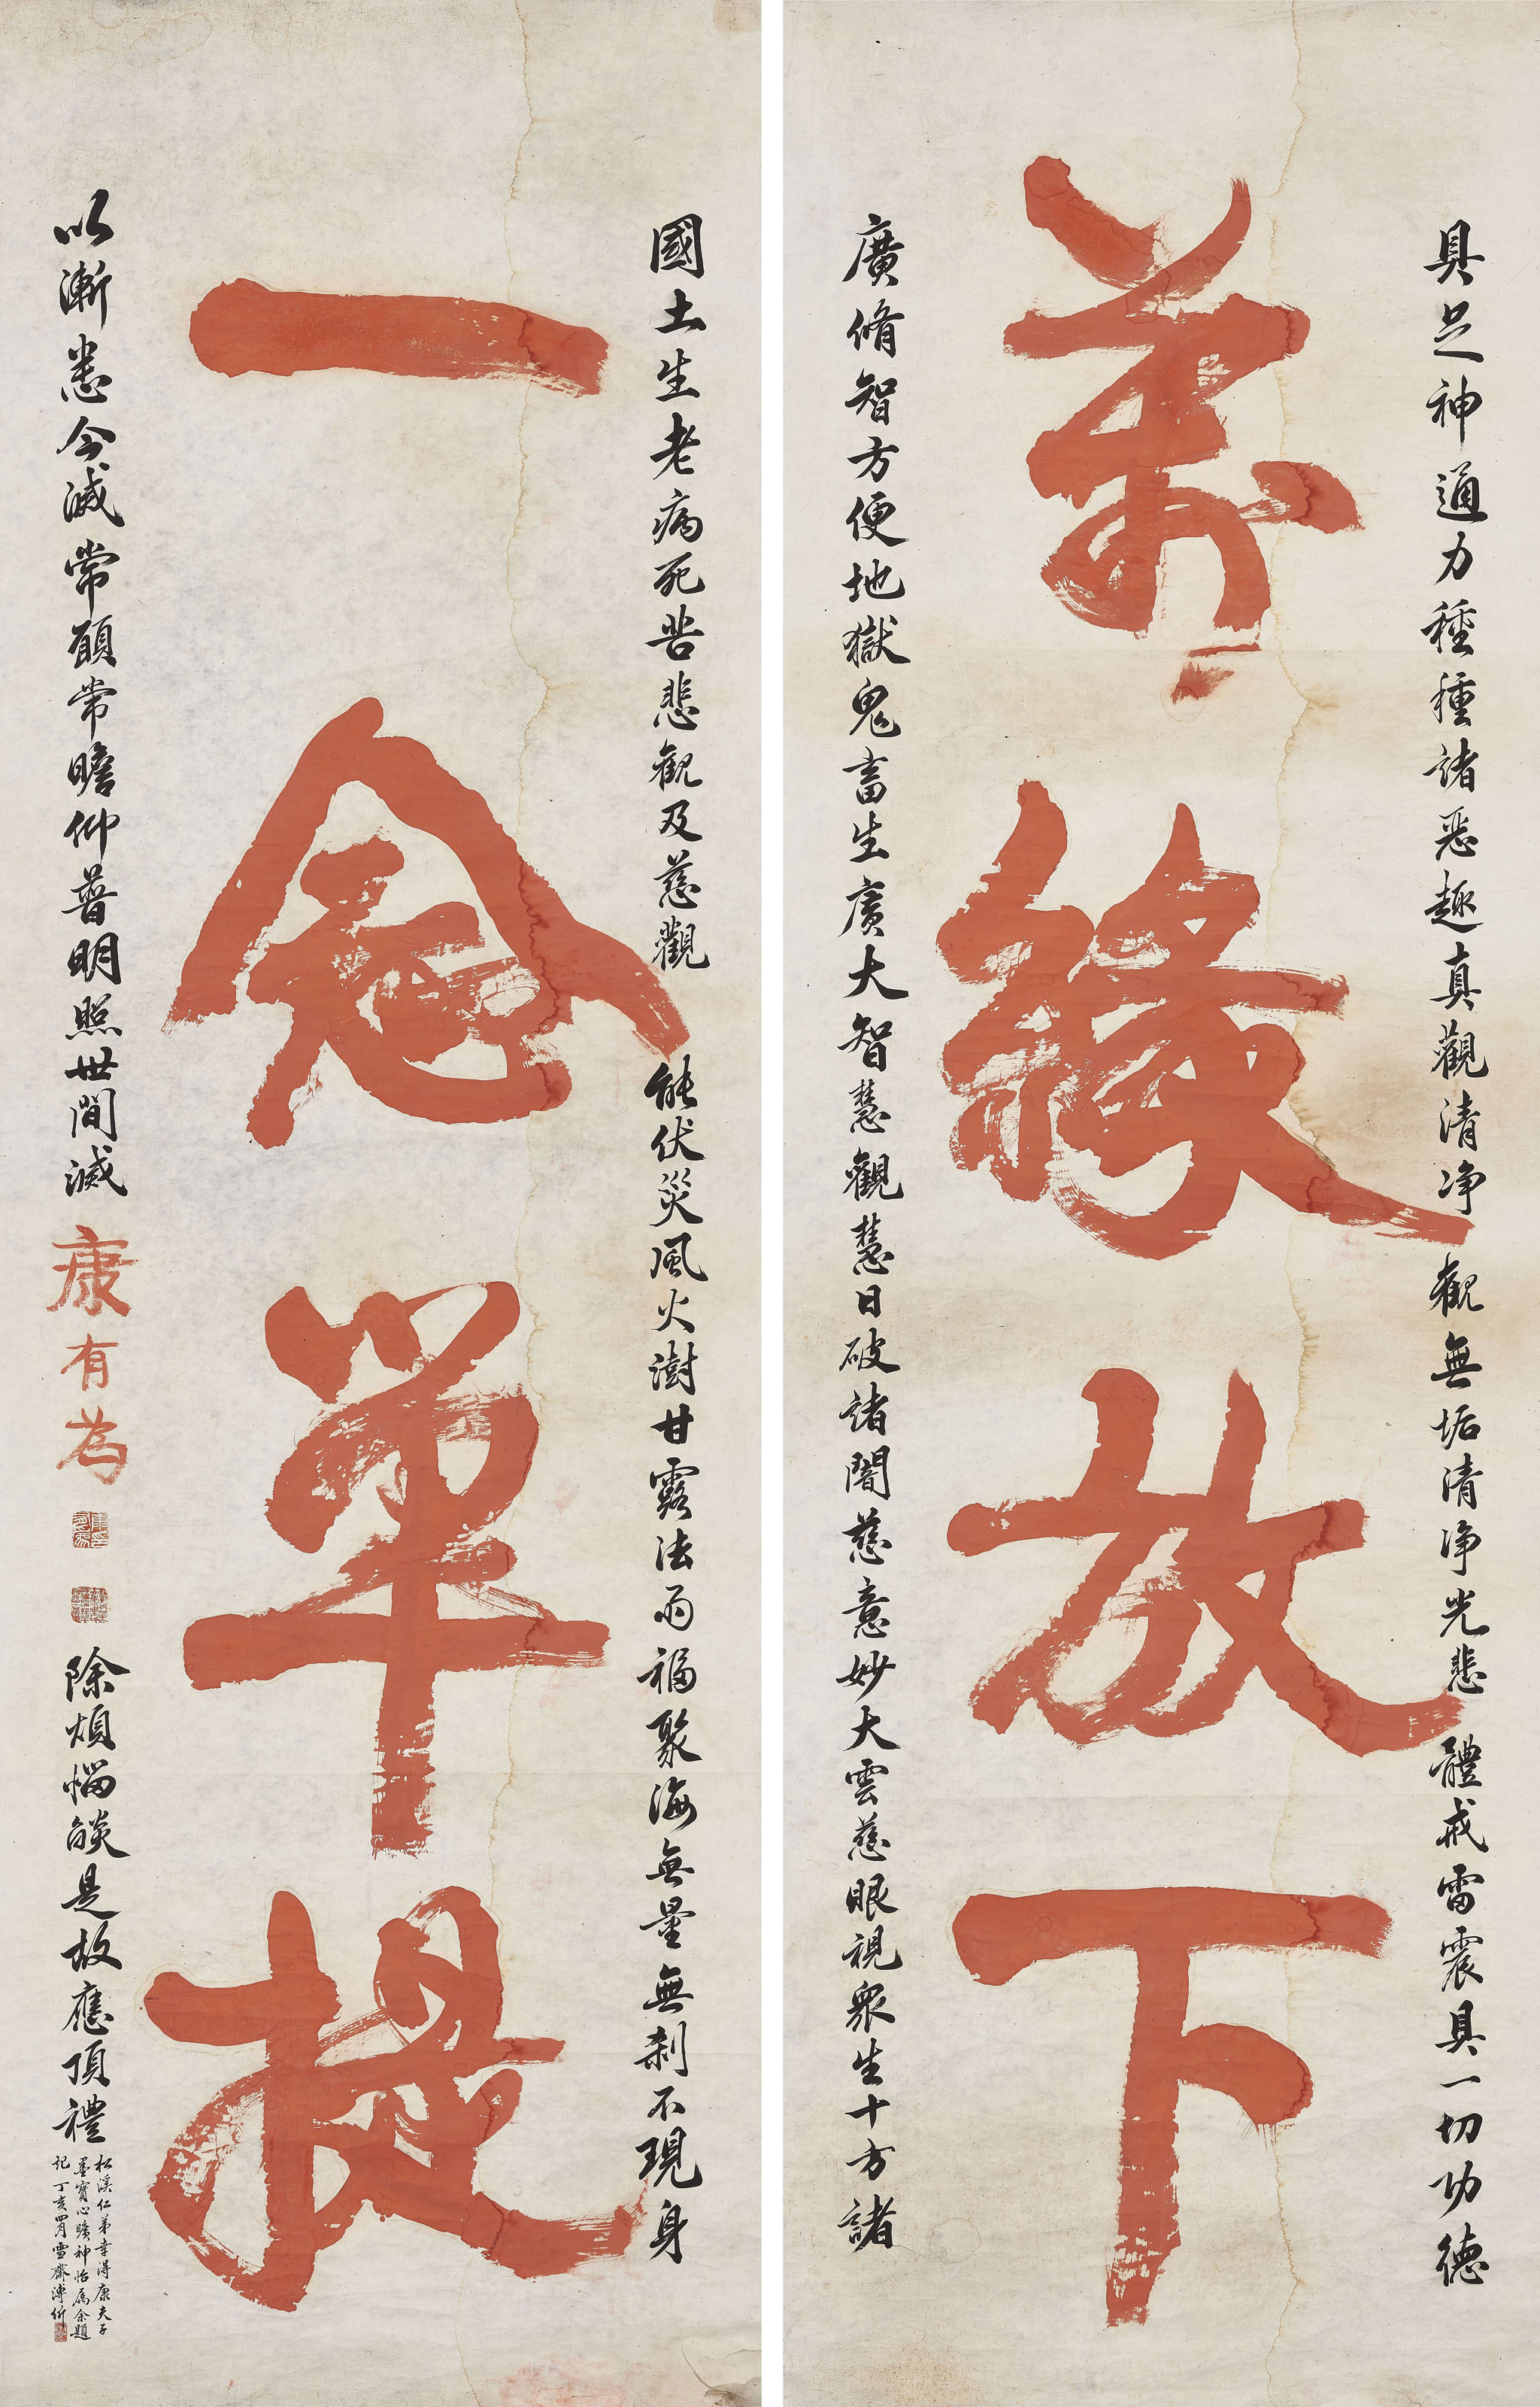 具足神通力種種諸惡趣真觀清净觀無垢清净光悲體戒雷震具一切功德
萬緣放下
廣脩智方便地獄鬼畜生廣大智慧觀慧日破諸闇慈意妙大雲慈眼視衆生十方諸
國土生老病死苦悲觀及慈觀能伏災風火澍甘露法雨福聚海無量無刹不現身
一念單提
以漸悉令滅常願常瞻仰普明照世間滅
康有為
除煩惱燄是故應頂禮
松溪仁弟幸得康夫子
墨寶心曠神怡屬余題
記丁亥四月雪齋溥伒